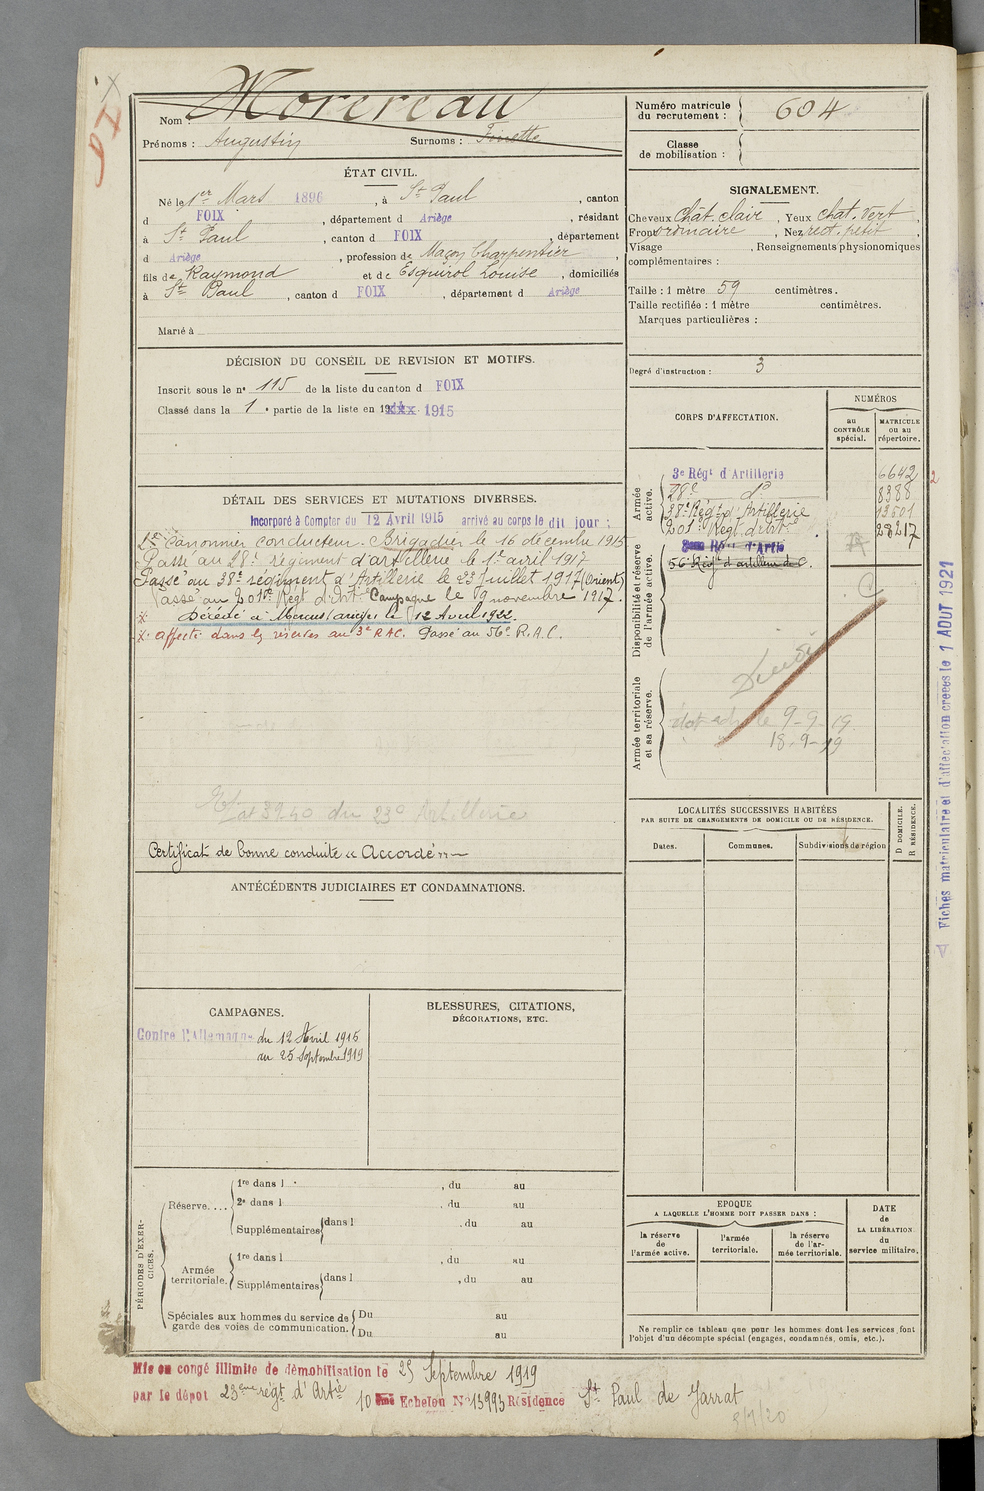 Nom : Morereau
Prénoms : Augustin Surnoms :
Numéro matricule
du recrutement : 604
Classe
de mobilisation :
ÉTAT CIVIL.
Né le 1er Mars 1896, à St Paul, canton
d FOIX, département d Ariège, résidant
à St Paul, canton d FOIX, département
d Ariège, profession de Maçon Charpentier,
fils de Raymond et de Esquirol Louise, domiciliés
à St Paul, canton d FOIX, département d Ariège
Marié à
SIGNALEMENT.
Cheveux Chât. clair, Yeux chat. vert,
Front ordinaire, Nez rect. petit,
Visage, Renseignements physionomiques
complémentaires :
Taille : 1 mètre 59 centimètres.
Taille rectifiée : 1 mètre centimètres.
Marques particulières :
Degré d'instruction : 3
DÉCISION DU CONSEIL DE REVISION ET MOTIFS.
Inscrit sous le n° 115 de la liste du canton d FOIX
Classé dans la 1e partie de la liste en 1915
DÉTAIL DES SERVICES ET MUTATIONS DIVERSES.
Incorporé à Compter du 12 Avril 1915 arrivé au corps le dit jour ;
canonnier conducteur. Brigadier le 16 décembre 1915
Passé au 28e régiment d'artillerie le 1er avril 1917
Passé au 38e régiment d'Artillerie le 23 juillet 1917 (Orient)
Passé au 201e Régt d'art. Campagne le 9 novembre 1917.
Décédé à Mercus (ariège) le 12 Avril 1922.
x affecté dans les réserves au 3e RAC. Passé au 56e R.A.C.
du 23e Artillerie
Certificat de bonne conduite "Accordé"
CORPS D'AFFECTATION.
NUMÉROS
au
CONTRÔLE
spécial.
MATRICULE
ou au
répertoire.
Armée
active.
3e Régt d'Artillerie 6642
28e do 8388
38e Régt d'Artillerie 13501
201e Régt d'art. 28217
Disponibilité et réserve
de l'armée active.
56 Régt d'artillerie de C.
C
Armée territoriale
et sa réserve.
9-9-19
18-9-19
Fiches matriculaire et d'affectation créées le 1 AOUT 1921
LOCALITÉS SUCCESSIVES HABITÉES
PAR SUITE DE CHANGEMENTS DE DOMICILE OU DE RÉSIDENCE.
Dates. Communes. Subdivisions de région
D DOMICILE.
R RÉSIDENCE.
ANTÉCÉDENTS JUDICIAIRES ET CONDAMNATIONS.
CAMPAGNES.
Contre l'Allemagne du 12 Avril 1915
au 25 Septembre 1919
BLESSURES, CITATIONS,
DÉCORATIONS, ETC.
PÉRIODES D'EXER-
CICES.
Réserve....
1re dans l , du au
2e dans l , du au
Supplémentaires dans l , du au
Armée
territoriale.
1re dans l , du au
Supplémentaires dans l , du au
Spéciales aux hommes du service de
garde des voies de communication.
Du au
Du au
EPOQUE
A LAQUELLE L'HOMME DOIT PASSER DANS :
la réserve
de
l'armée active.
l'armée
territoriale.
la réserve
de l'ar-
mée territoriale.
DATE
de
LA LIBÉRATION
du
service militaire.
Ne remplir ce tableau que pour les hommes dont les services font
l'objet d'un décompte spécial (engagés, condamnés, omis, etc.).
Mis en congé illimité de démobilisation le 25 Septembre 1919
par le dépôt 23eme régt d'Artie 10 eme Echelon N° 13993 Résidence St Paul de Jarrat